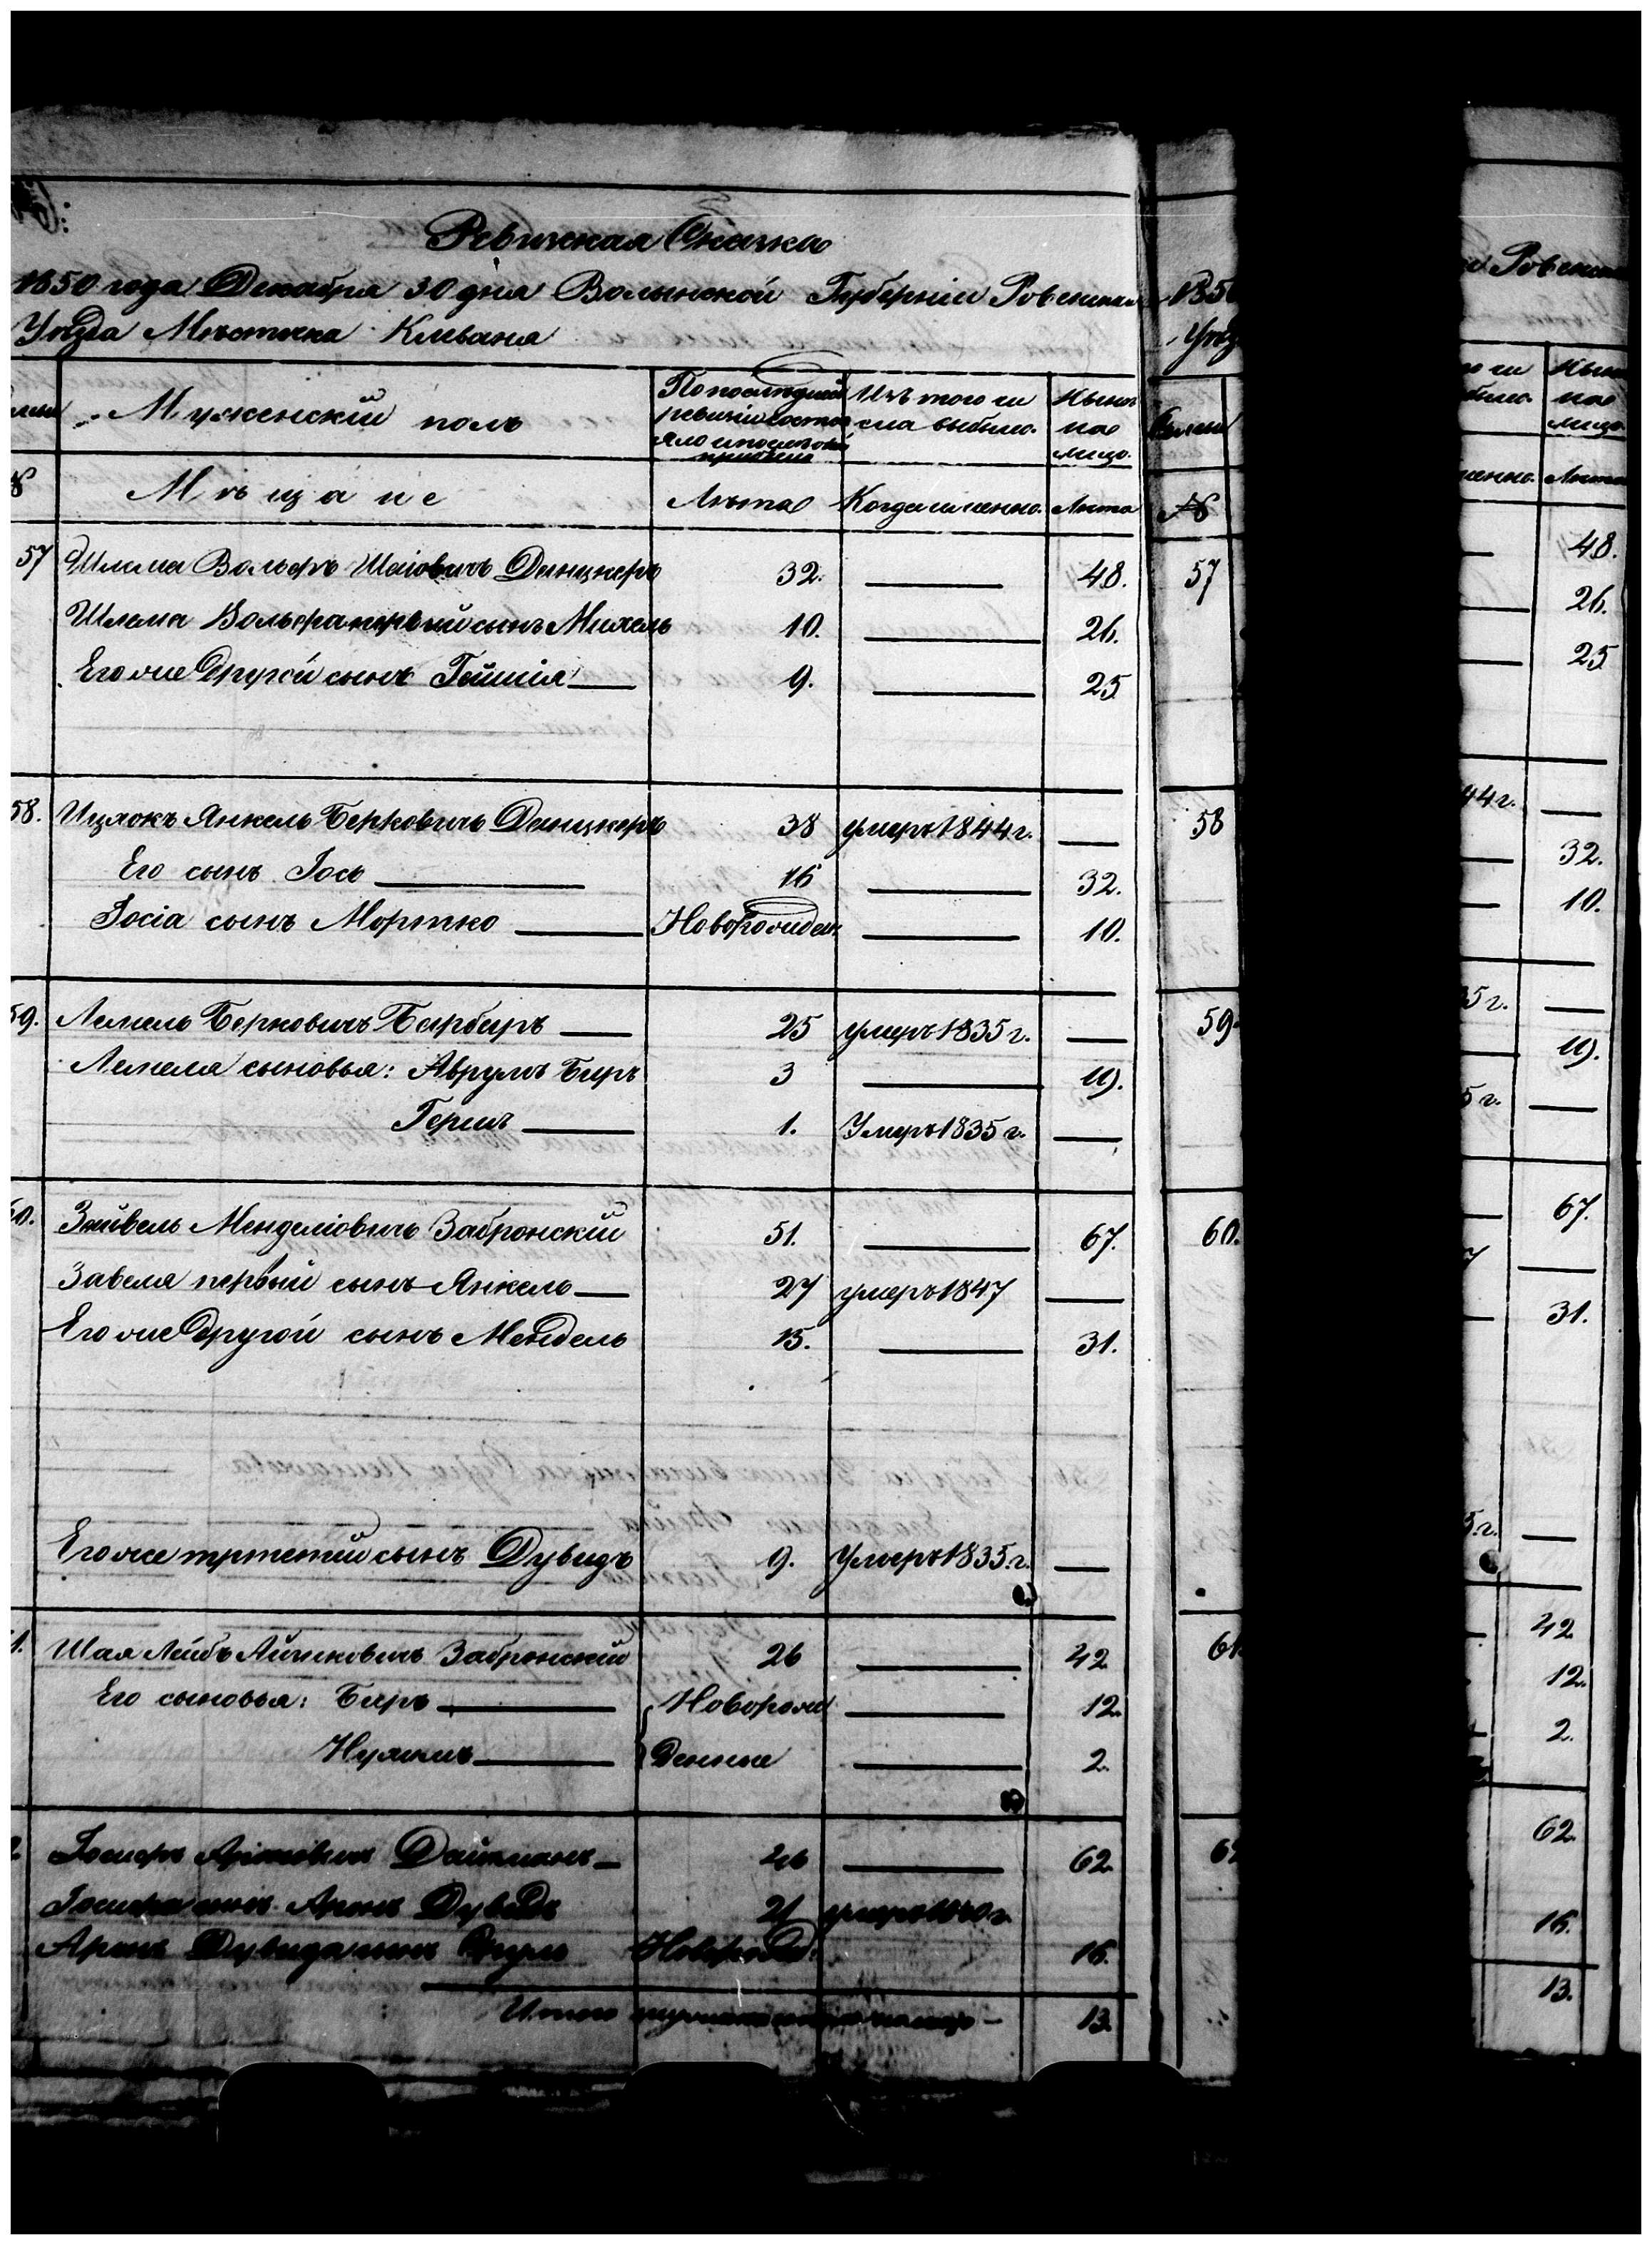 Ревизская Сказка
1850 года Декабря 30 дня Волынской Губернии Ровенскаго
Уезда Мѣстечка Клеваня
Мужескій полъ
По послѣдней ревизіи состояло и послѣ того прибыло
Изъ того числа выбыло.
Нынѣ на лицо.
№
Мѣщане
Лѣта
Когда именно.
Лѣта
57 Шлома Вольфъ Шаіовичъ Данцкеръ 32. 48.
Шлема Вольфа первый сынъ Михель 10. 26.
Его же Другой сынъ Гейшія 9. 25
58. Ицкокъ Янкель Берковичъ Данцкеръ 38 умеръ 1844 г.
Его сынъ Іось 16 32.
Іосіа сынъ Мортко Новорожден. 10.
59. Лемель Берковичъ Барбаръ 25 умеръ 1835 г.
Лемеля сыновья: Аврумъ Беръ 3 19.
Гершъ 1. Умеръ 1835 г.
60. Зейвель Менделіовичъ Забронскій 51. 67.
Завеля первый сынъ Янкель 27 умеръ 1847
Его же Другой сынъ Мендель 15. 31.
Его же третій сынъ Дувидъ 9. Умеръ 1835 г.
Шая Лейбъ Айзиковичъ Забронскій 26 42
Его сыновья: Беръ Новорож 12.
Нухимъ Денные 2.
Іосифъ Дайтманъ 46 62.
Іосифа сынъ Аронъ Дувидъ 21 умеръ
Аронъ Дувида сынъ Сруль Новорожд. 16.
Итого 13.
1850
Уезд
№
57
58
59
60.
61
Ровенска
Лѣта
48.
26.
25
44 г.
32.
10.
5 г.
19.
5 г.
67.
7
31.
5 г.
42
12.
2.
62.
16.
13.